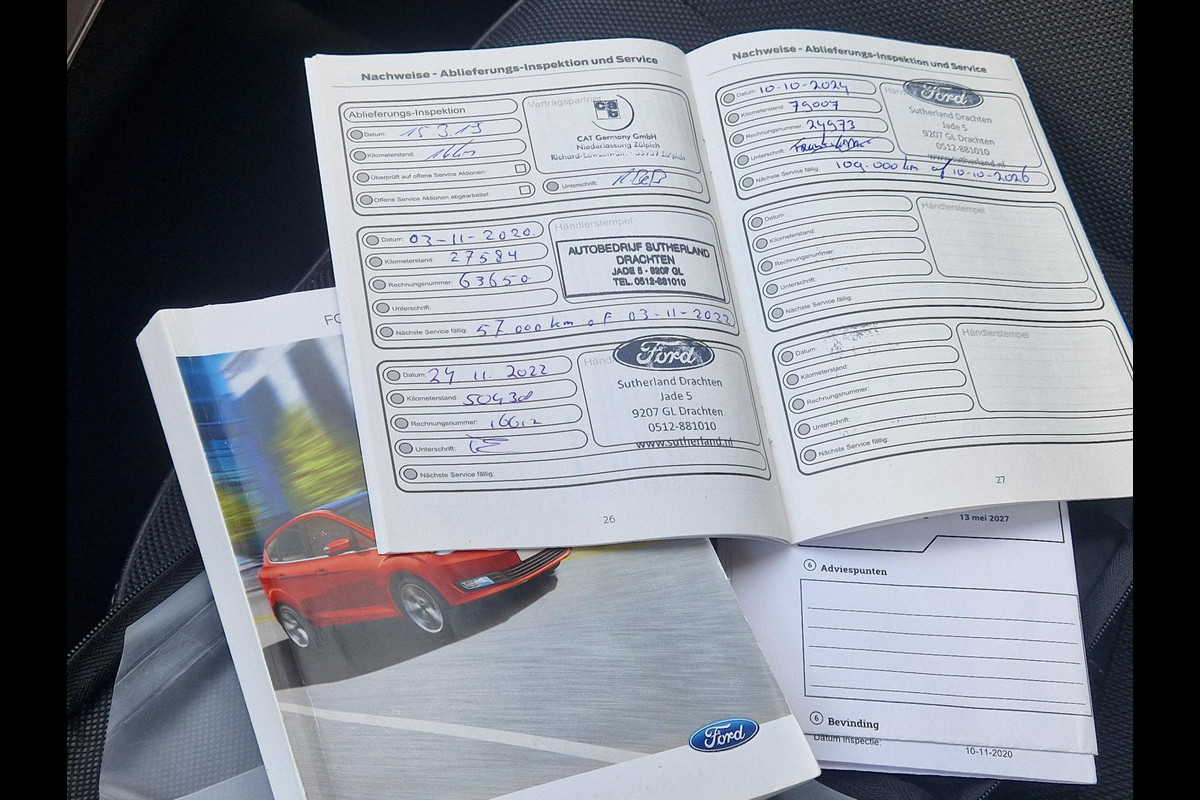 Nachweise - Ablieferungs-Inspektion und Service
Ablieferungs-Inspektion
Datum: 15.3.19
Kilometerstand:
Überprüft auf offene Service Aktionen:
Offene Service Aktionen abgearbeitet:
Vertragspartner
CAT Germany GmbH
Niederlassung Zülpich
Zülpich
Unterschrift:
Datum: 03-11-2020.
Kilometerstand: 27584
Rechnungsnummer: 63650
Unterschrift:
Nächste Service fällig: 57.000 km of 03-11-2022
Händlerstempel
AUTOBEDRIJF SUTHERLAND
DRACHTEN
JADE 5 - 9207 GL
TEL. 0512-881010
Datum: 29 11. 2022
Kilometerstand: 50438
Rechnungsnummer:
Unterschrift:
Nächste Service fällig:
Ford
Sutherland Drachten
Jade 5
9207 GL Drachten
0512-881010
www.sutherland.nl
26
Nachweise - Ablieferungs-Inspektion und Service
Datum: 10-10-2024
Kilometerstand: 79007
Rechnungsnummer: 24973
Unterschrift:
Nächste Service fällig: 109.000 km of 10-10-2026
Ford
Sutherland Drachten
Jade 5
9207 GL Drachten
0512-881010
www.sutherland.nl
Datum:
Kilometerstand:
Rechnungsnummer:
Unterschrift:
Nächste Service fällig:
Händlerstempel
Datum:
Kilometerstand:
Rechnungsnummer:
Unterschrift:
Nächste Service fällig:
Händlerstempel
27
FO
Ford
13 mei 2027
6 Adviespunten
6 Bevinding
Datum inspectie: 10-11-2020